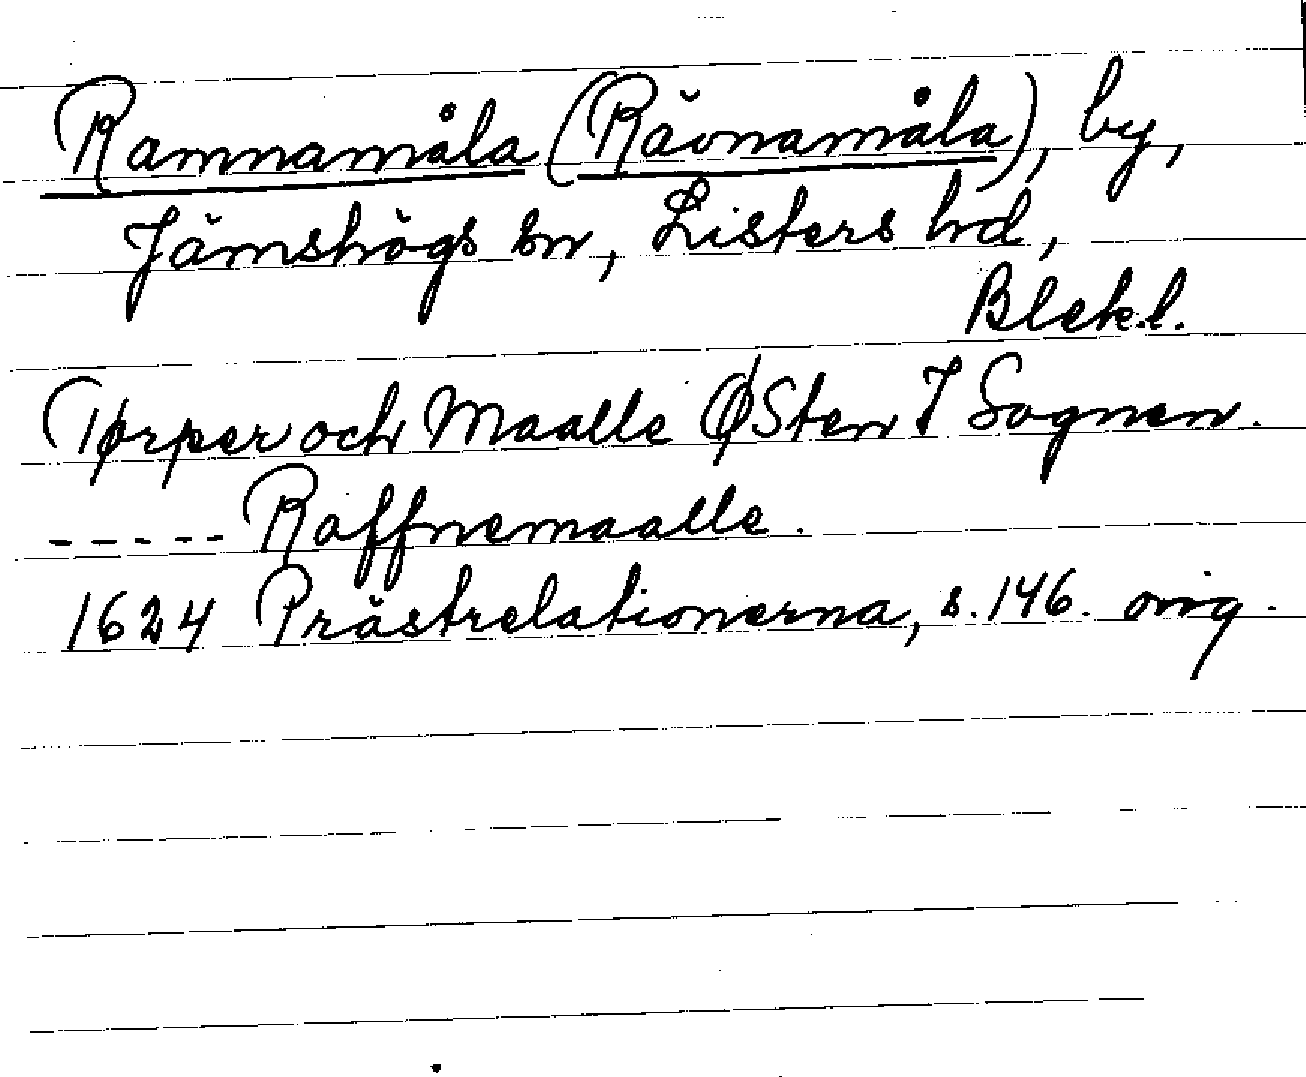 Ramnamåla (Rävnamåla), by,
Jämshögs sn, Listers hd,
Blek.l.
Tørper och Maalle ØSten I Sognen.
----- Raffnemaalle.
1624 Prästrelationerna, s. 146. orig.